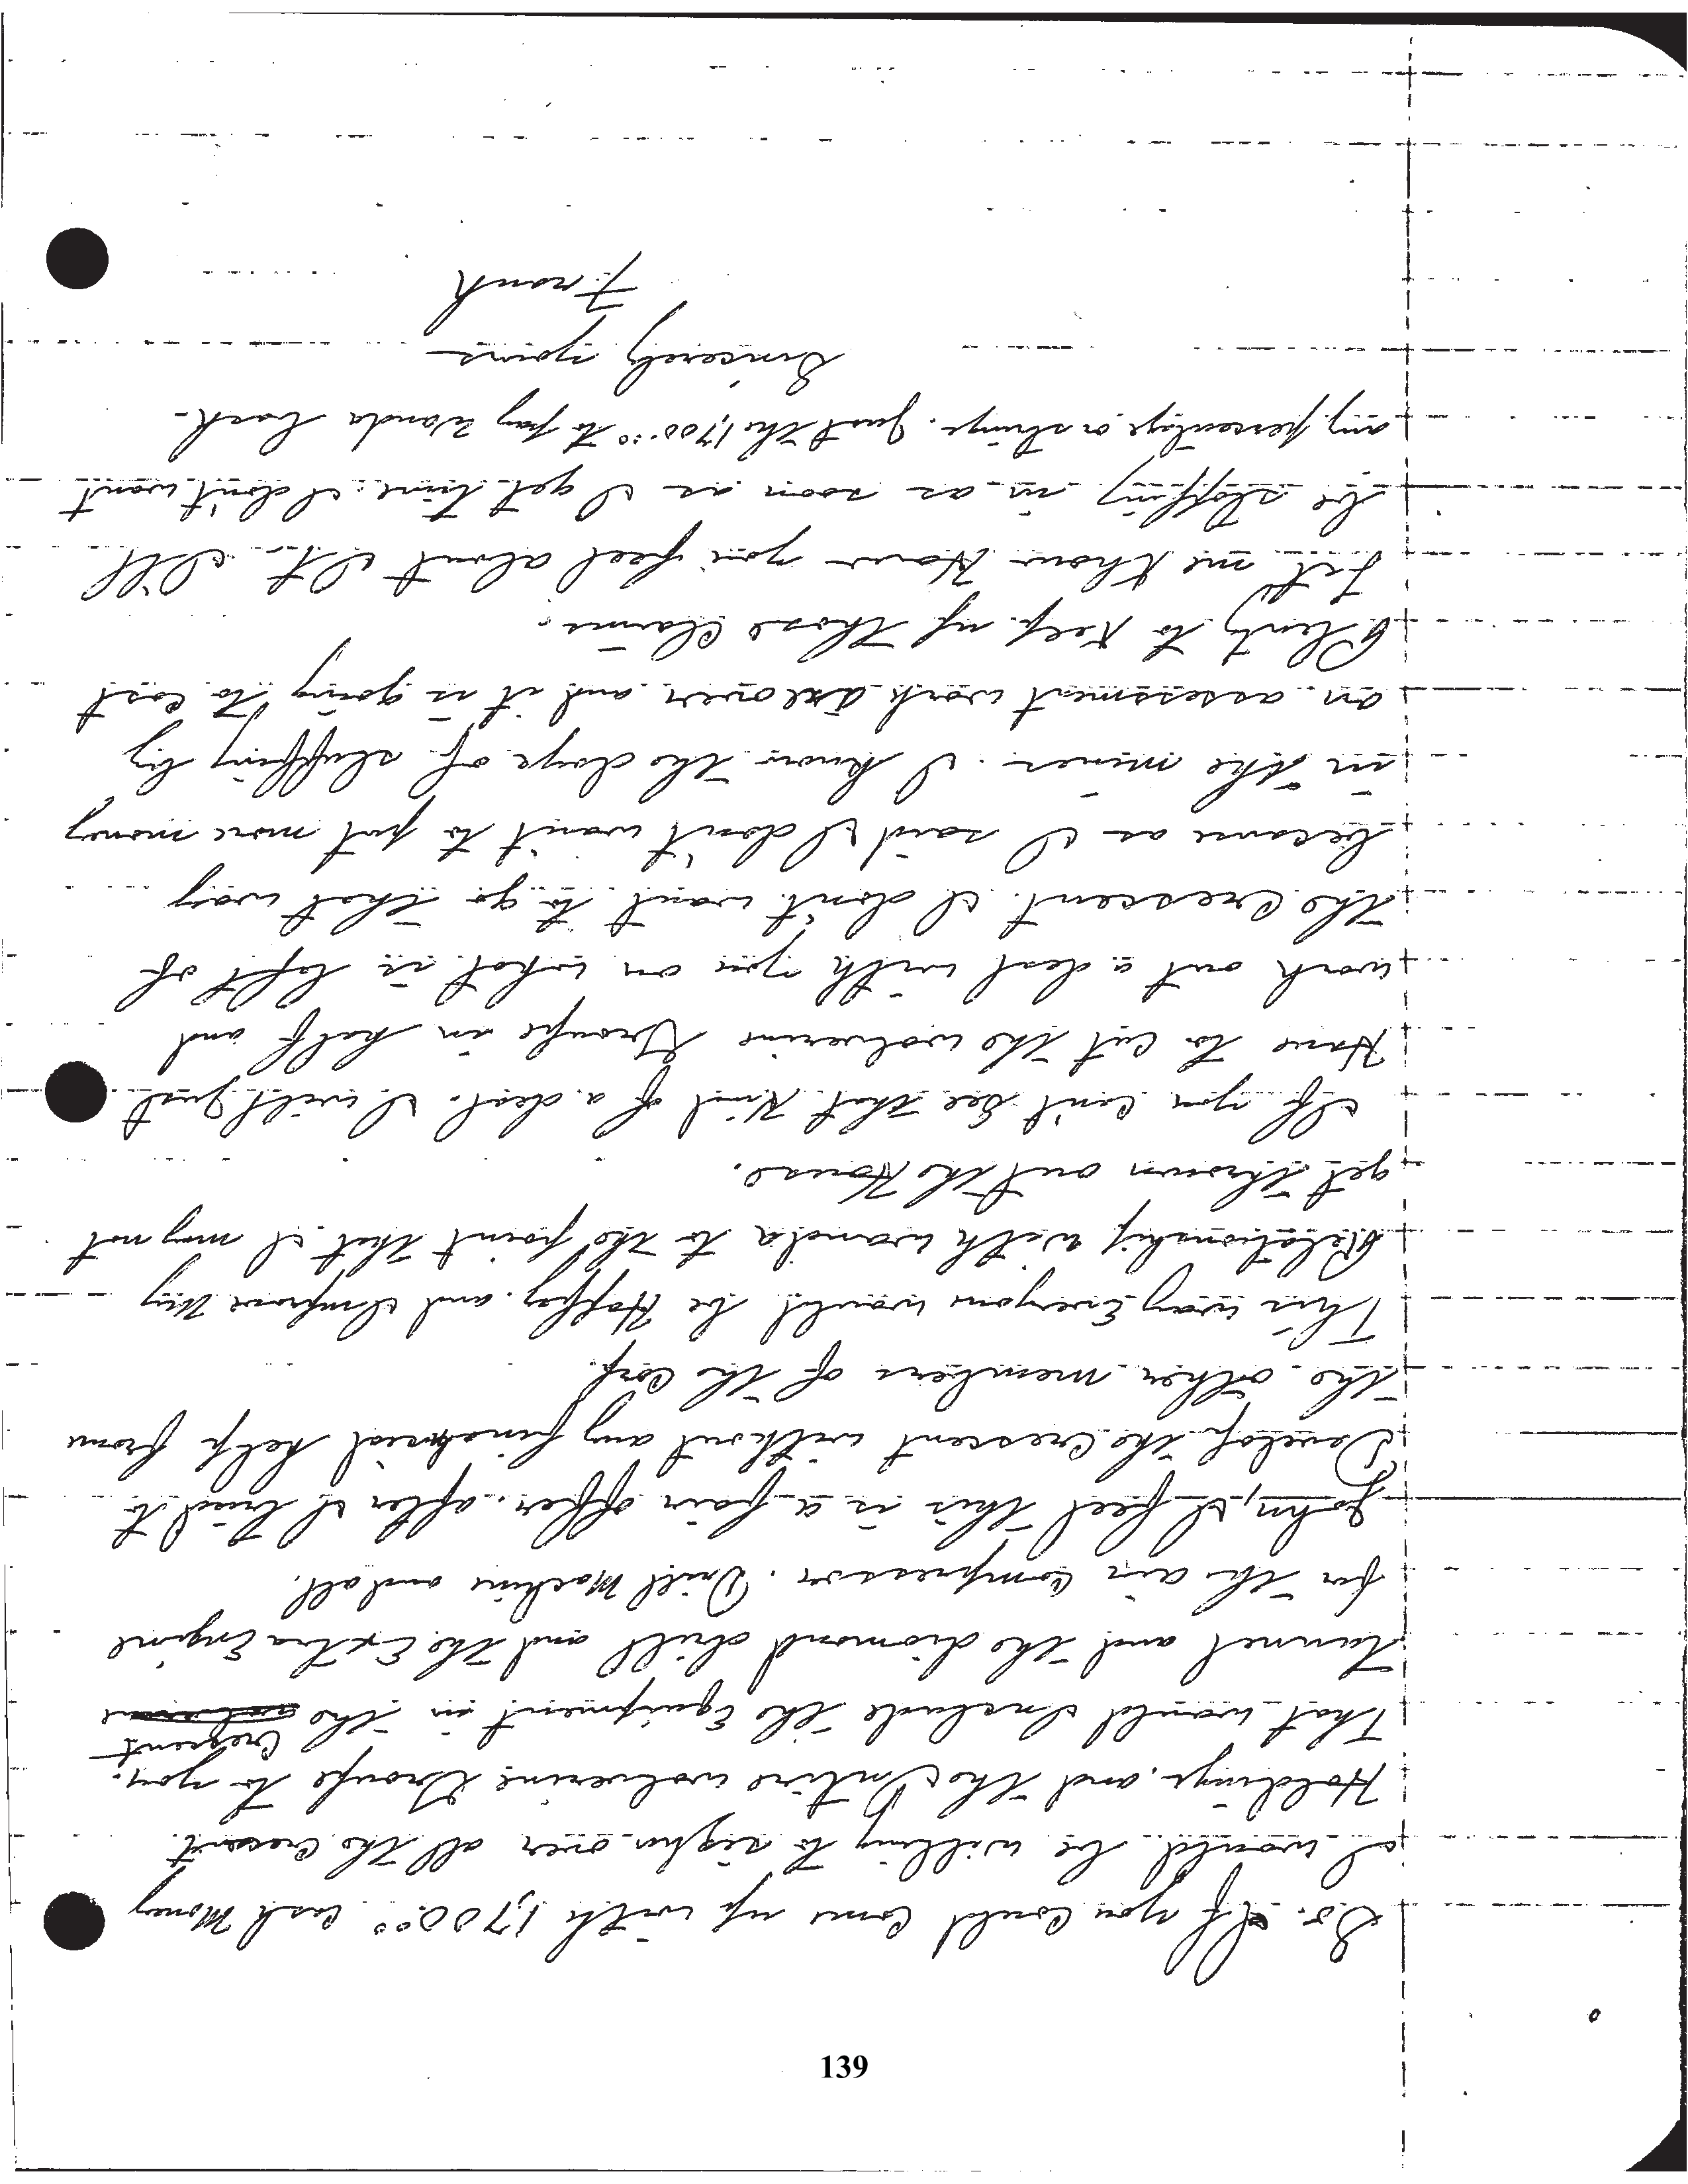 So. If you Could Come up with 1,700.00 Cash Money
I would be willing to sighn over all the Crecent.
Holdings. and the Entire wolverine Groupe to you.
Crescent
That would Include the Equipment in the
tunnel and the diomond drill and the Extra Engine
for the air compressor. Drill Machine and all.
John, I feel this is a fair offer. after I tried to
Develop the Crescent without any finacial help from
the other members of the Corp.
This way Everyone would be Happy. and Improve My
Relationship with wanda to the point that I may not
get thrown out the House.
If you Can't See that Kind of a deal. I will Just
Have to Cut the wolverine Groupe in half and
work out a deal with you on what is left of
the Crescent. I don't want to go that way
because as I said I don't want to put more money
in the mines. I know the days of sluffing by
on assessment work are over and it is going to Cost
Plenty to Keep up those Claims.
Let me know How you feel about It. I'll
be stopping in as soon as I get time. I don't want
any percentage or strings. Just the 1,700.00 to pay Wanda back.
Sincerely yours
Frank
139